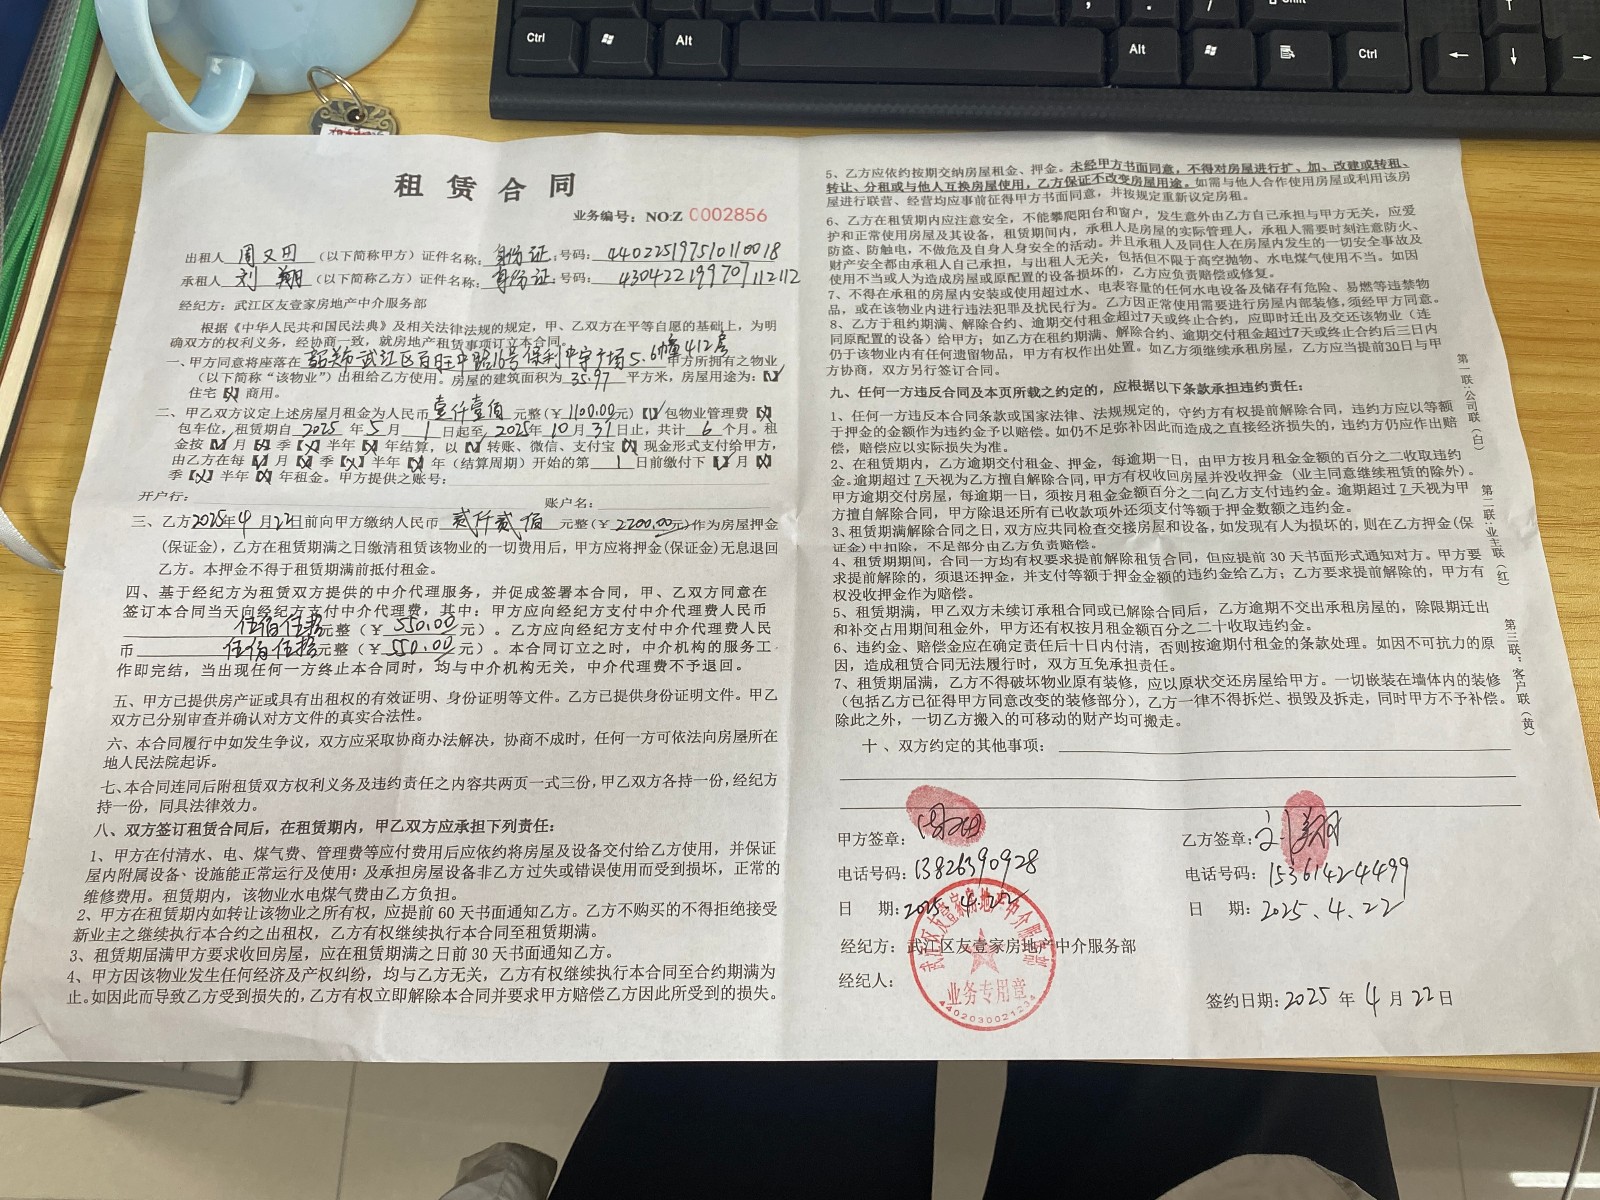 Ctrl
Alt
Alt
Ctrl
Shift
租赁合同
业务编号：NO:Z 0002856
出租人 周又田 （以下简称甲方）证件名称：身份证 号码：440225197510110018
承租人 刘翔 （以下简称乙方）证件名称：身份证 号码：430422199707112112
经纪方：武江区友壹家房地产中介服务部
根据《中华人民共和国民法典》及相关法律法规的规定，甲、乙双方在平等自愿的基础上，为明
确双方的权利义务，经协商一致，就房地产租赁事项订立本合同。
一、甲方同意将座落在 韶关市武江区百旺中路16号保利中宇广场5.6幢412房 甲方所拥有之物业
（以下简称“该物业”）出租给乙方使用。房屋的建筑面积为 35.97 平方米，房屋用途为：【✓】
住宅【×】商用。
二、甲乙双方议定上述房屋月租金为人民币 壹仟壹佰 元整（￥1100.00元）【✓】包物业管理费【×】
包车位，租赁期自 2025 年 5 月 1 日起至 2025年 10 月 31 日止，共计 6 个月。租
金按【✓】月【×】季【×】半年【×】年结算，以【✓】转账、微信、支付宝【×】现金形式支付给甲方，
由乙方在每【✓】月【×】季【×】半年【×】年（结算周期）开始的第 1 日前缴付下【✓】月【×】
季【×】半年【×】年租金。甲方提供之账号：
开户行： 账户名：
三、乙方2025年4月22日前向甲方缴纳人民币 贰仟贰佰 元整（￥2200.00元）作为房屋押金
（保证金），乙方在租赁期满之日缴清租赁该物业的一切费用后，甲方应将押金（保证金）无息退回
乙方。本押金不得于租赁期满前抵付租金。
四、基于经纪方为租赁双方提供的中介代理服务，并促成签署本合同，甲、乙双方同意在
签订本合同当天向经纪方支付中介代理费，其中：甲方应向经纪方支付中介代理费人民币
伍佰伍拾元整（￥550.00元）。乙方应向经纪方支付中介代理费人民
币 伍佰伍拾元整（￥550.00元）。本合同订立之时，中介机构的服务工
作即完结，当出现任何一方终止本合同时，均与中介机构无关，中介代理费不予退回。
五、甲方已提供房产证或具有出租权的有效证明、身份证明等文件。乙方已提供身份证明文件。甲乙
双方已分别审查并确认对方文件的真实合法性。
六、本合同履行中如发生争议，双方应采取协商办法解决，协商不成时，任何一方可依法向房屋所在
地人民法院起诉。
七、本合同连同后附租赁双方权利义务及违约责任之内容共两页一式三份，甲乙双方各持一份，经纪方
持一份，同具法律效力。
八、双方签订租赁合同后，在租赁期内，甲乙双方应承担下列责任：
1、甲方在付清水、电、煤气费、管理费等应付费用后应依约将房屋及设备交付给乙方使用，并保证
屋内附属设备、设施能正常运行及使用；及承担房屋设备非乙方过失或错误使用而受到损坏，正常的
维修费用。租赁期内，该物业水电煤气费由乙方负担。
2、甲方在租赁期内如转让该物业之所有权，应提前60天书面通知乙方。乙方不购买的不得拒绝接受
新业主之继续执行本合约之出租权，乙方有权继续执行本合同至租赁期满。
3、租赁期届满甲方要求收回房屋，应在租赁期满之日前30天书面通知乙方。
4、甲方因该物业发生任何经济及产权纠纷，均与乙方无关，乙方有权继续执行本合同至合约期满为
止。如因此而导致乙方受到损失的，乙方有权立即解除本合同并要求甲方赔偿乙方因此所受到的损失。
5、乙方应依约按期交纳房屋租金、押金。未经甲方书面同意，不得对房屋进行扩、加、改建或转租、
转让、分租或与他人互换房屋使用，乙方保证不改变房屋用途。如需与他人合作使用房屋或利用该房
屋进行联营、经营均应事前征得甲方书面同意，并按规定重新议定房租。
6、乙方在租赁期内应注意安全，不能攀爬阳台和窗户，发生意外由乙方自己承担与甲方无关，应爱
护和正常使用房屋及其设备，租赁期间内，承租人是房屋的实际管理人，承租人需要时刻注意防火、
防盗、防触电，不做危及自身人身安全的活动。并且承租人及同住人在房屋内发生的一切安全事故及
财产安全都由承租人自己承担，与出租人无关，包括但不限于高空抛物、水电煤气使用不当。如因
使用不当或人为造成房屋或原配置的设备损坏的，乙方应负责赔偿或修复。
7、不得在承租的房屋内安装或使用超过水、电表容量的任何水电设备及储存有危险、易燃等违禁物
品，或在该物业内进行违法犯罪及扰民行为。乙方因正常使用需要进行房屋内部装修，须经甲方同意。
8、乙方于租约期满、解除合约、逾期交付租金超过7天或终止合约，应即时迁出及交还该物业（连
同原配置的设备）给甲方；如乙方在租约期满、解除合约、逾期交付租金超过7天或终止合约后三日内
仍于该物业内有任何遗留物品，甲方有权作出处置。如乙方须继续承租房屋，乙方应当提前30日与甲
方协商，双方另行签订合同。
九、任何一方违反合同及本页所载之约定的，应根据以下条款承担违约责任：
1、任何一方违反本合同条款或国家法律、法规规定的，守约方有权提前解除合同，违约方应以等额
于押金的金额作为违约金予以赔偿。如仍不足弥补因此而造成之直接经济损失的，违约方仍应作出赔
偿，赔偿应以实际损失为准。
2、在租赁期内，乙方逾期交付租金、押金，每逾期一日，由甲方按月租金金额的百分之二收取违约
金。逾期超过7天视为乙方擅自解除合同，甲方有权收回房屋并没收押金（业主同意继续租赁的除外）。
甲方逾期交付房屋，每逾期一日，须按月租金金额百分之二向乙方支付违约金。逾期超过7天视为甲
方擅自解除合同，甲方除退还所有已收款项外还须支付等额于押金数额之违约金。
3、租赁期满解除合同之日，双方应共同检查交接房屋和设备，如发现有人为损坏的，则在乙方押金（保
证金）中扣除，不足部分由乙方负责赔偿。
4、租赁期期间，合同一方均有权要求提前解除租赁合同，但应提前30天书面形式通知对方。甲方要
求提前解除的，须退还押金，并支付等额于押金金额的违约金给乙方；乙方要求提前解除的，甲方有
权没收押金作为赔偿。
5、租赁期满，甲乙双方未续订承租合同或已解除合同后，乙方逾期不交出承租房屋的，除限期迁出
和补交占用期间租金外，甲方还有权按月租金额百分之二十收取违约金。
6、违约金、赔偿金应在确定责任后十日内付清，否则按逾期付租金的条款处理。如因不可抗力的原
因，造成租赁合同无法履行时，双方互免承担责任。
7、租赁期届满，乙方不得破坏物业原有装修，应以原状交还房屋给甲方。一切嵌装在墙体内的装修
（包括乙方已征得甲方同意改变的装修部分），乙方一律不得拆烂、损毁及拆走，同时甲方不予补偿。
除此之外，一切乙方搬入的可移动的财产均可搬走。
十、双方约定的其他事项：
甲方签章： 周又田
乙方签章： 刘翔
电话号码：13826390928
电话号码：15361424499
日 期：2025.4.22
日 期：2025.4.22
经纪方：武江区友壹家房地产中介服务部
经纪人：
签约日期：2025 年 4 月 22 日
武江区友壹家房地产中介服务部
业务专用章
第一联：公司联（白）
第二联：业主联（红）
第三联：客户联（黄）